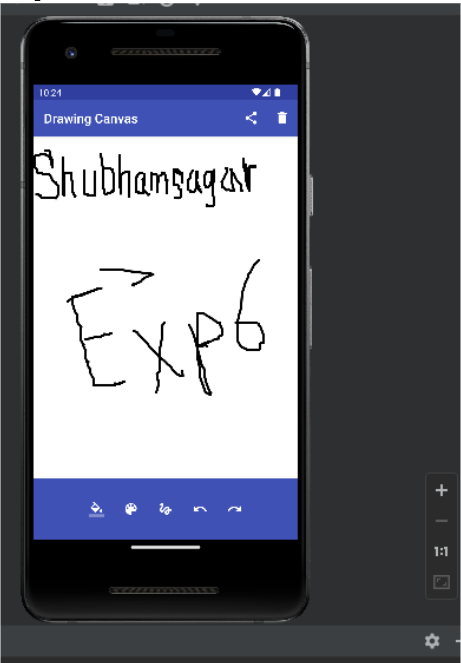 10:24
Drawing Canvas
Shubhamsagar
Exp6
1:1